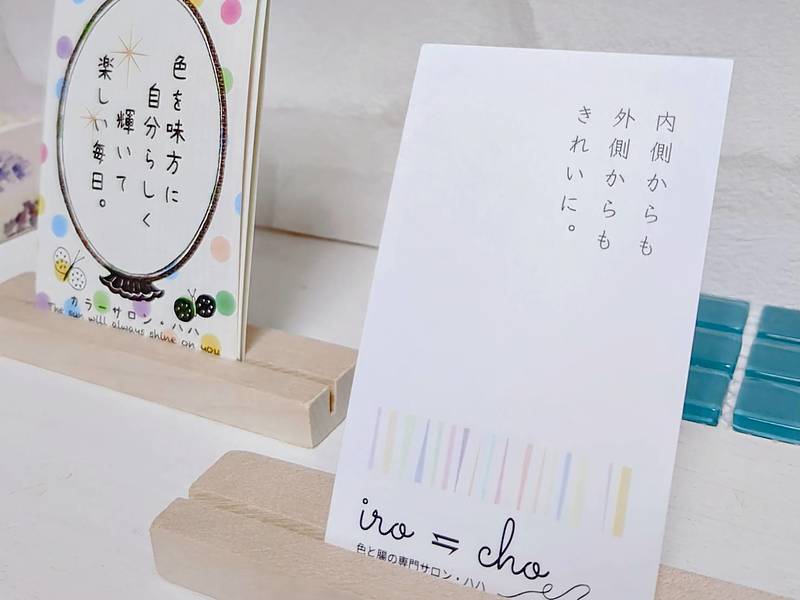 色を味方に
自分らしく
輝いて
楽しい毎日。
カラーサロン・ハハ
The sun will always shine on you
内側からも
外側からも
きれいに。
iro ≒ cho
色と腸の専門サロン・ハハ